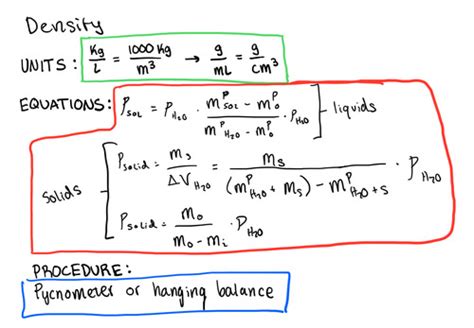 Density
UNITS : Kg/L = 1000 Kg/m³ → g/mL = g/cm³
EQUATIONS: ρ_SOL = ρ_H₂O · (m^P_SOL − m^P_o)/(m^P_H₂O − m^P_o) · ρ_H₂O ] liquids
solids [ ρ_solid = m_s/ΔV_H₂O = m_s/((m^P_H₂O + m_s) − m^P_H₂O+s) · ρ_H₂O
ρ_solid = m_o/(m_o − m_i) · ρ_H₂O
PROCEDURE:
Pycnometer or hanging balance